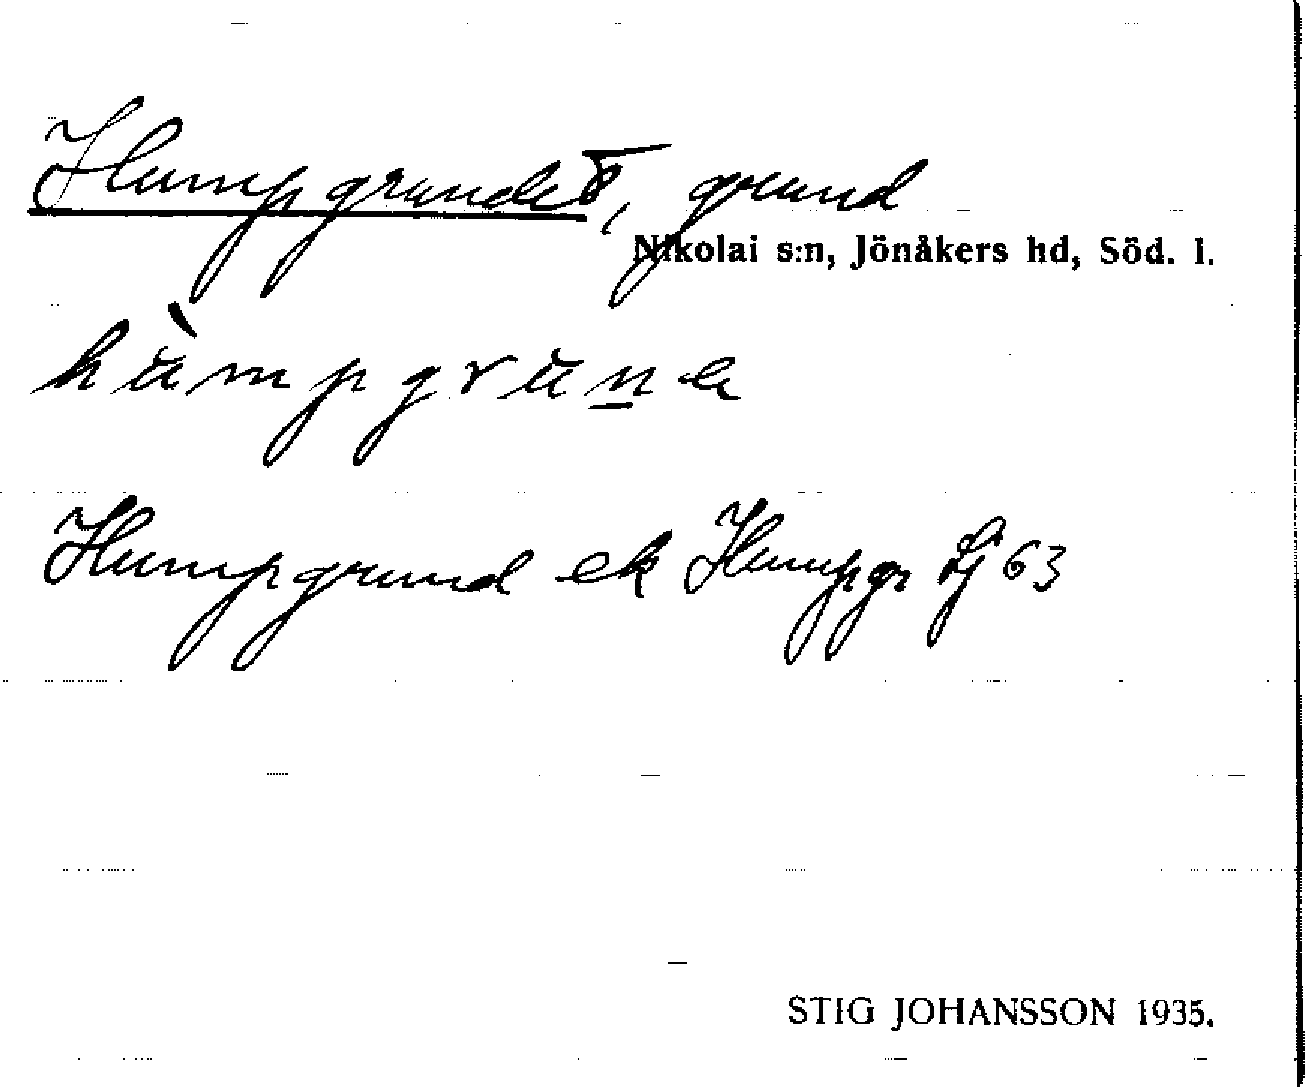 Humpgrundet, grund
Nikolai s:n, Jönåkers hd, Söd. l.
hùmpgruṉe
Humpgrund ek Humpgr Lj 63
STIG JOHANSSON 1935.